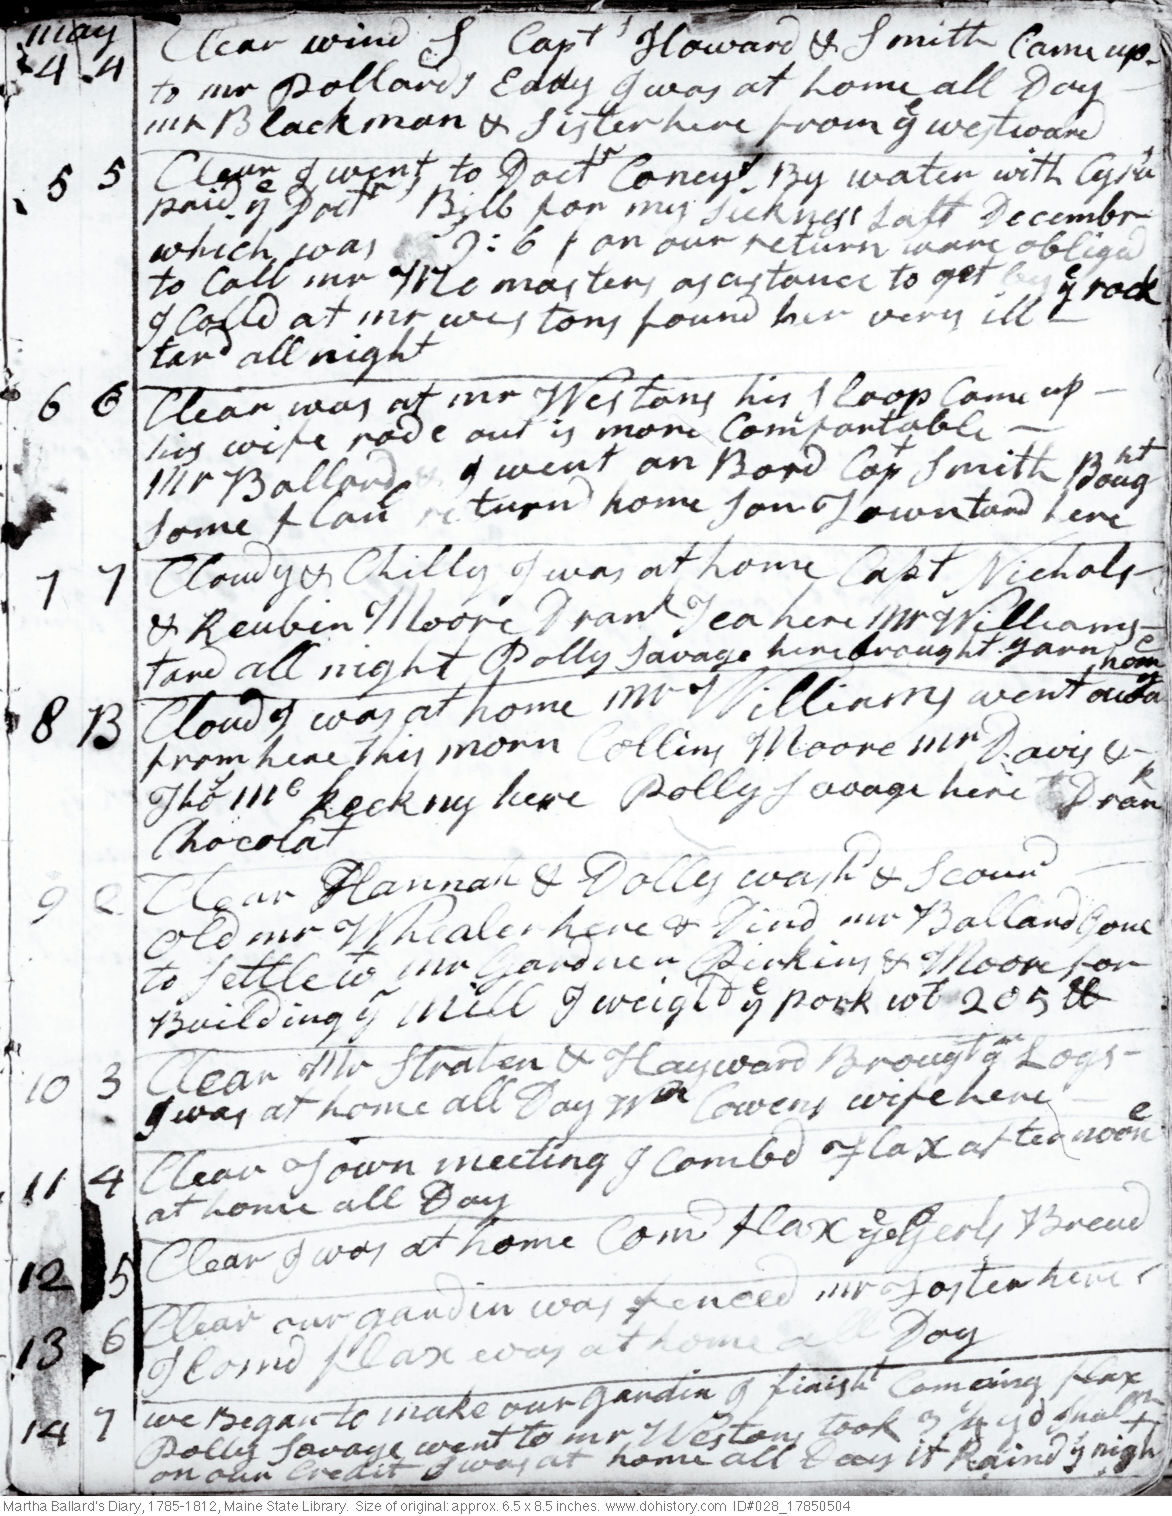 may
4 4 Clear wind S Capt^s Howard & Smith Came up
to mr Pollards Eady I was at home all Day
mr Blackman & Sister here from y^e westward
5 5 Clear I went to Doct^r Coneys By water with Cyrus
paid y^e Doct^rs Bill for my sickness Last Decembr
which was 9:6 / on our return ware obligd
to Call mr Mc masters asistance to get by y^e rock
I Calld at mr westons found her very ill
tard all night
6 6 Clear was at mr Westons his Sloop Came up
his wife rode out is more Comfortable
Mr Ballard & I went on Bord Capt Smith Bought
some flau returnd home Jon Town tard here
7 7 Cloudy & Chilly I was at home Capt Nichols
& Reubin Moore Drank Tea here Mr Williams
tard all night Polly Savage here brought yarn home
8 B Cloudy I was at home Mr Williams went away
from here this morn Collins Moore mr Davis &
Tho^s Mc keckny here Polly Savage here Drank
Chocolat
9 2 Clear Hannah & Dolly washd & Scourd
old mr Whealer here & Dind mr Ballard Gone
to Settle w^t mr Gardner Pirkins & Moore for
Building y^e Mill I weighd y^e pork wt 205 lb
10 3 Clear Mr Straten & Hayward Brought y^r Logs
I was at home all Day W^m Cowens wife here
11 4 Clear Town meeting I Combd Flax afternoone
at home all Day
12 5 Clear I was at home Comd flax y^e Gerls Breud
13 6 Clear our gardin was fenced mr Foster here
I Comd flax was at home all Day
14 7 we Began to make our gardin I finisht Comeing flax
Polly Savage went to mr Westons took 3
on our Credit I was at home all Day it Raind y^s night
Martha Ballard's Diary, 1785-1812, Maine State Library. Size of original: approx. 6.5 x 8.5 inches. www.dohistory.com ID#028_17850504